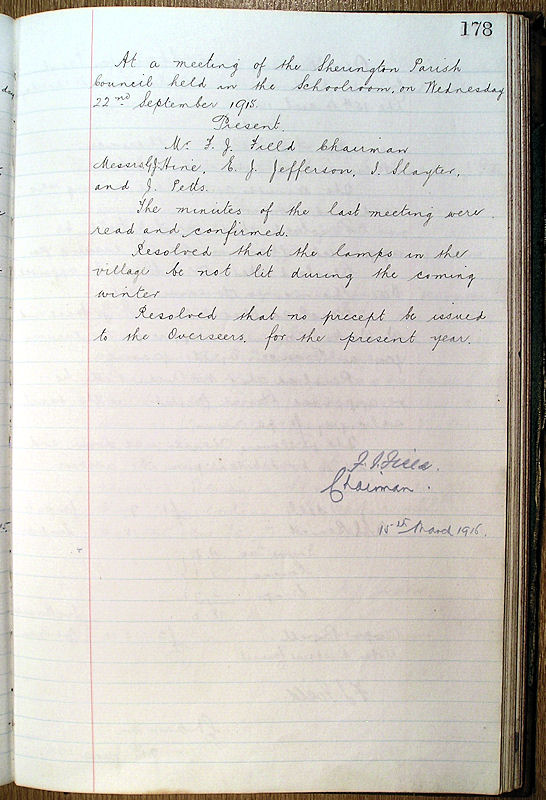 178
At a meeting of the Sherington Parish
Council held in the Schoolroom, on Wednesday
22nd September 1915.
Present.
Mr. F. J. Field Chairman
Messrs G J Hine, E. J. Jefferson, I. Slayter,
and J. Petts.
The minutes of the last meeting were
read and confirmed.
Resolved that the lamps in the
village be not lit during the coming
winter
Resolved that no precept be issued
to the Overseers, for the present year.
F. J. Field.
Chairman.
15th March 1916.